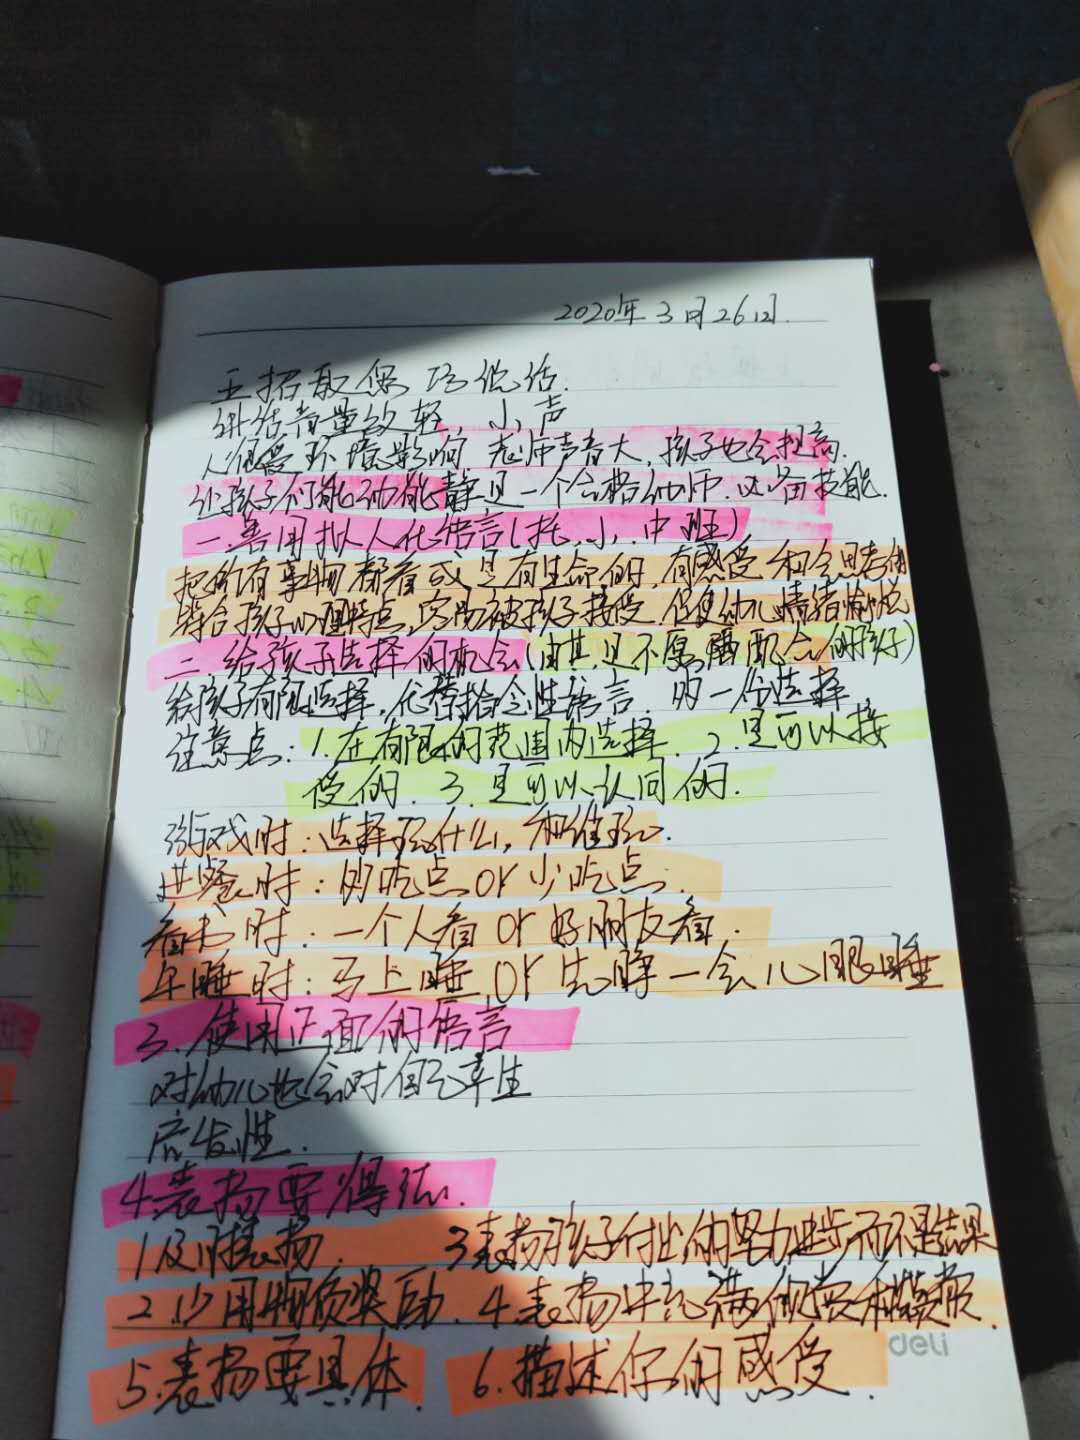 2020年3月26日.
五招教您巧说话.
讲话音量放轻,小声
人很受环境影响 老师声音大,孩子也会提高.
让孩子们能动能静是一个合格幼师.必备技能.
一.善用拟人化语言(托、小、中班)
把所有事物都看成是有生命的,有感受和会思考的
符合孩子心理特点,容易被孩子接受,促使幼儿情绪愉悦
二.给孩子选择的机会(尤其是不愿 配合的孩子)
给孩子有限选择,代替指令性语言. 的一份选择
注意点:1.在有限的范围内选择. 2.是可以接
受的. 3.是可以认同的.
游戏时:选择玩什么,和谁玩.
进餐时:的吃点 or 少吃点.
看书时:一个人看 or 好朋友看.
午睡时:马上睡 or 先躺一会儿眼睡
3.使用正面的语言
对幼儿也会对自己产生
启发性.
4.表扬要得法.
1及时表扬. 3表扬孩子付出的努力进步而不是结果
2.少用物质奖励. 4.表扬中充满欣赏和
5.表扬要具体 6.描述你的感受.
deli